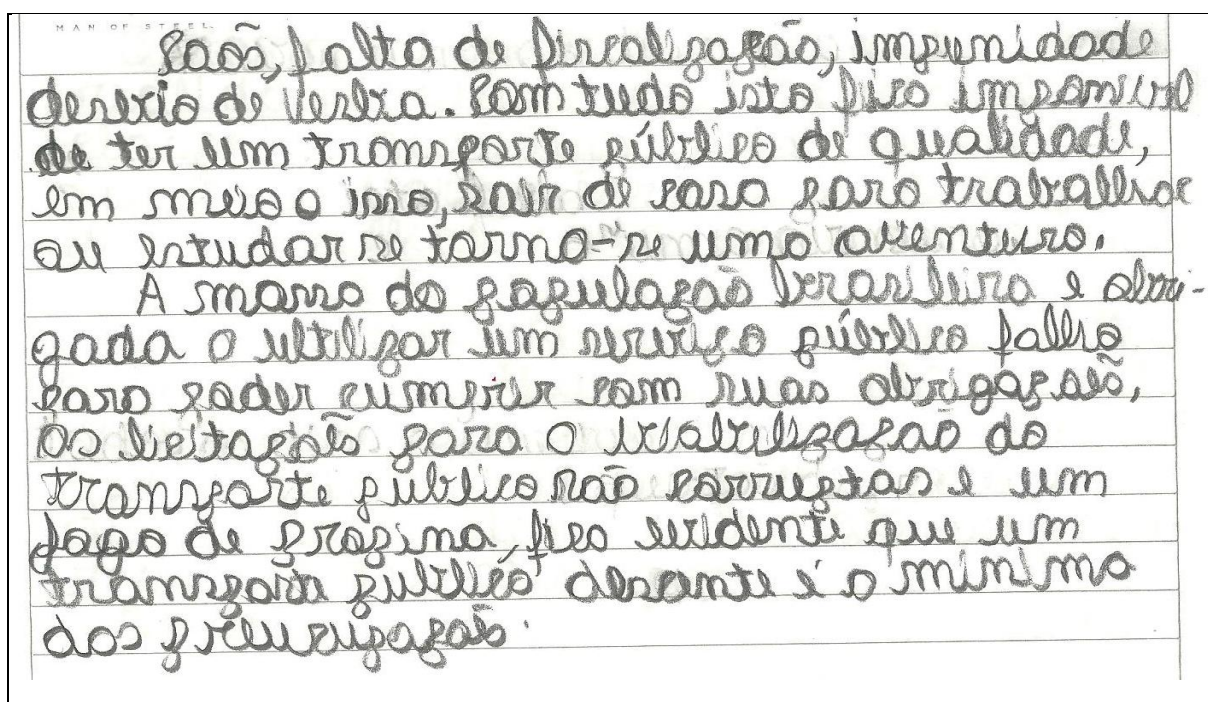 MAN OF STEEL.
Caos, falta de fiscalização, impunidade
desvio de verba. Com tudo isto fica impossivel
de ter um transporte público de qualidade,
em meio a isso, sair de casa para trabalhar
ou estudar se torna-se uma aventura.
A massa da população brasileira e obri-
gada a ultilizar um serviço público falho
para poder cumprir com suas obrigações,
as licitações para a viabilização do
transporte público são corruptas e um
jogo de propina, fica evidente que um
transporte público desante é o minimo
das preucupação.